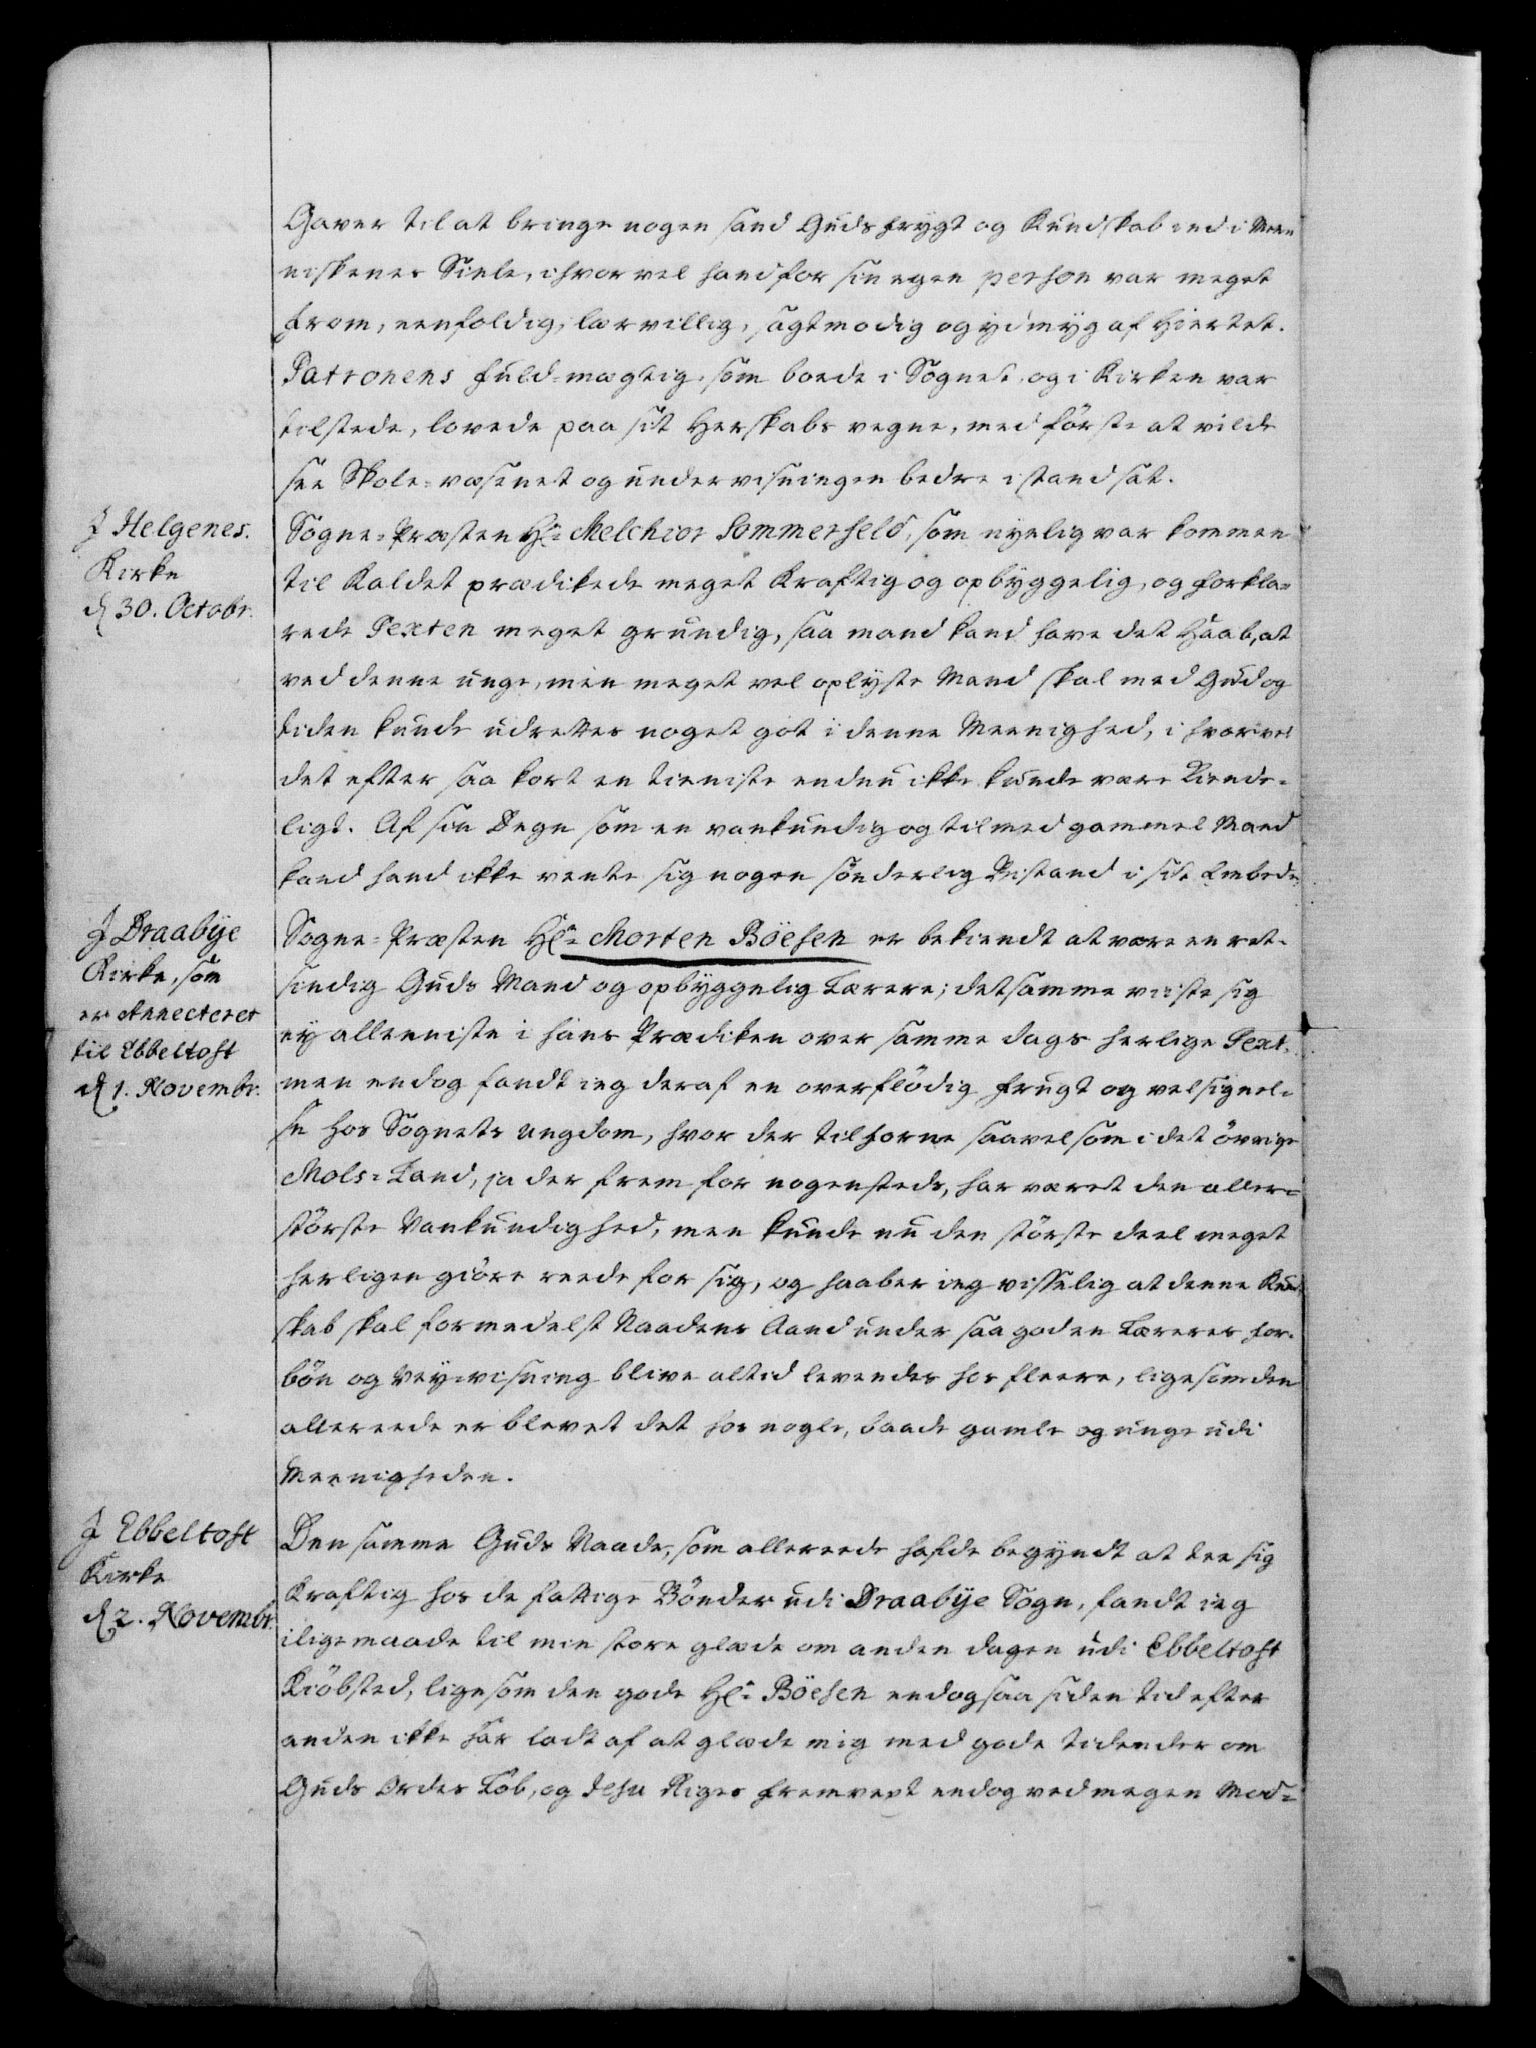 Gaver til at bringe nogen sand Guds frygt og Kundskab ind i Men
niskenes Siele, ihvorvel hand for sin egen person var meget
from, eenfoldig, lærvillig, sagtmodig og ydmyg af Hiertet.
Patronens fuld-mægtig, som boede i Sognet, og i Kirken var
tilstede, lovede paa sit Herskabs vegne, med förste at vilde
see Skole-væsenet og underviisningen bedre i stand sat.
J Helgenes.
Kirke
d 30. Octobr.
Sogne-Præsten Hr. Melchior Sommerfeld, som nyelig var kommen
til Kaldet prædikede meget Kraftig og opbyggelig, og forkla-
rede Texten meget grundig, saa mand kand have det Haab, at
ved denne unge, men meget vel oplyste Mand skal med Gud og
tiden kunde udrettes noget got i denne Meenighed, i hvorvel
det efter saa kort en tieniste endnu ikke kunde være Kiende-
ligt. Af sin Degn som en vankundig og tilmed gammel Mand
kand hand ikke vente sig nogen sönderlig Bistand i sit Embede.
J Draabye
Kirke, som
er Annecteret
til Ebbeltoft
d 1. Novembr.
Sogne-Præsten Hr. Morten Böesen er bekiendt at være en ret-
sindig Guds Mand og opbyggelig Lærere; det samme viiste sig
ey alleeniste i hans Prædiken over samme dags herlige Text,
men endog fandt ieg deraf en overflödig frugt og velsignel-
se hos Sognets ungdom, hvor der tilforne saavelsom i det övrige
Mols-Land, ja der frem for nogensteds, har været den aller-
störste Vankundighed, men kunde nu den störste deel meget
herligen giöre reede for sig, og haaber ieg visselig at denne Kund
skab skal formedelst Naadens Aand under saa goden Læreres for-
bön og Veyviisning blive altid levendes hos fleere, ligesom den
allereede er blevet det hos nogle, baade gamle og unge udi
Meenigheden.
J Ebbeltoft
Kirke
d 2. Novembr.
Den samme Guds Naade, som allereede hafde begyndt at tee sig
Kraftig hos de fattige Bönder udi Draabye Sogn, fandt ieg
iligemaade til min store glæde om anden dagen udi Ebbeltoft
Kiöbsted, ligesom den gode Hr. Böesen endogsaa siden tid efter
anden ikke har ladt af at glæde mig med gode tidender om
Guds Ordes Löb, og Jesu Riges fremvext endog ved megen Mod-